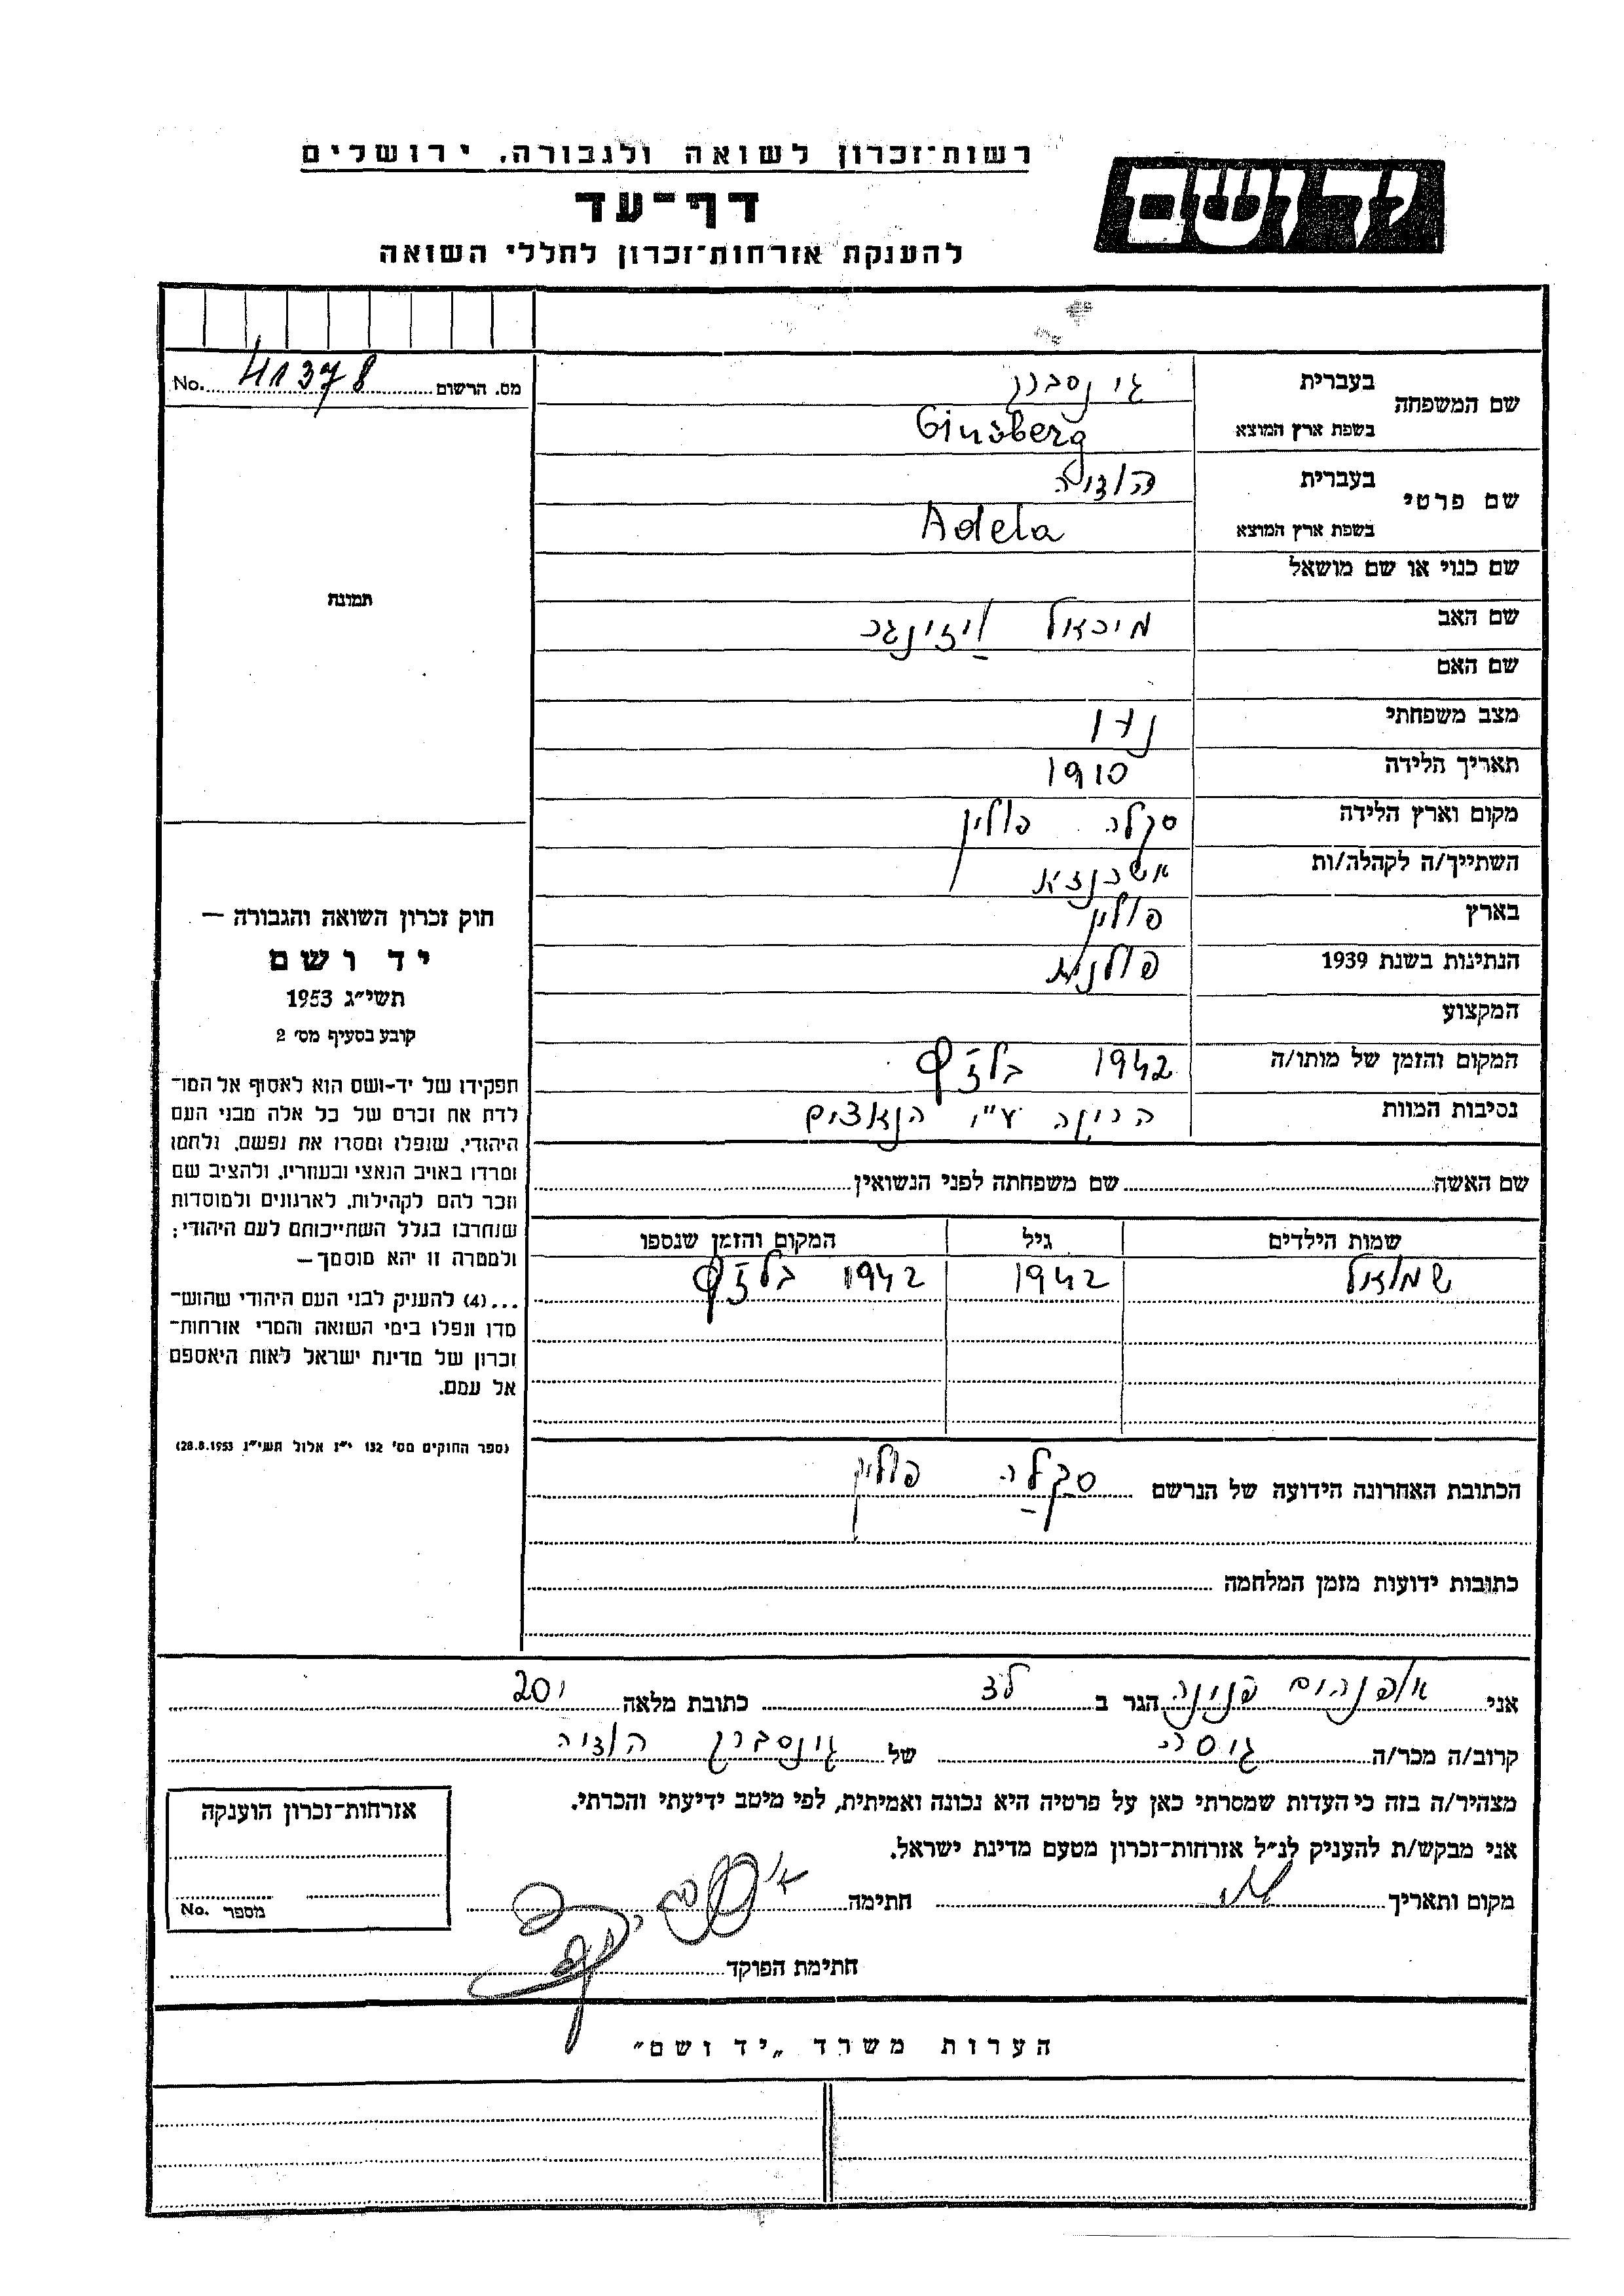 רשות-זכרון לשואה ולגבורה, ירושלים
יד ושם
דף-עד
להענקת אזרחות-זכרון לחללי השואה
מס. הרשום 41378 No.
שם המשפחה
בעברית גינסברג
בשפת ארץ המוצא Ginsberg
שם פרטי
בעברית הודיה
בשפת ארץ המוצא Adela
שם כנוי או שם מושאל
שם האב מיכאל
שם האם
מצב משפחתי נשוי
תאריך הלידה 1910
מקום וארץ הלידה סקלה פולין
השתייך/ה לקהלה/ות
בארץ פולין
הנתינות בשנת 1939 פולנית
המקצוע
המקום והזמן של מותו/ה 1942 בלזץ
נסיבות המוות הריגה ע״י הנאצים
שם האשה שם משפחתה לפני הנשואין
שמות הילדים גיל המקום והזמן שנספו
שמואל 1942 1942 בלזץ
הכתובת האחרונה הידועה של הנרשם סקלה פולין
כתובות ידועות מזמן המלחמה
תמונה
חוק זכרון השואה והגבורה —
יד ושם
תשי״ג 1953
קובע בסעיף מס׳ 2
תפקידו של יד-ושם הוא לאסוף אל המו־
לדת את זכרם של כל אלה מבני העם
היהודי, שנפלו ומסרו את נפשם, נלחמו
ומרדו באויב הנאצי ובעוזריו, ולהציב שם
וזכר להם לקהילות, לארגונים ולמוסדות
שנחרבו בגלל השתייכותם לעם היהודי;
ולמטרה זו יהא מוסמך—
...(4) להעניק לבני העם היהודי שהוש־
מדו ונפלו בימי השואה והמרי אזרחות־
זכרון של מדינת ישראל לאות היאספם
אל עמם.
(ספר החוקים מס׳ 132 י״ז אלול תשי״ג 28.8.1953)
אני פנינה הגר ב כתובת מלאה
קרוב/ה מכר/ה גיסה של גינסברג הודיה
מצהיר/ה בזה כי העדות שמסרתי כאן על פרטיה היא נכונה ואמיתית, לפי מיטב ידיעתי והכרתי.
אני מבקש/ת להעניק לנ״ל אזרחות-זכרון מטעם מדינת ישראל.
מקום ותאריך חתימה
חתימת הפוקד
אזרחות-זכרון הוענקה
מספר No.
הערות משרד „יד ושם״